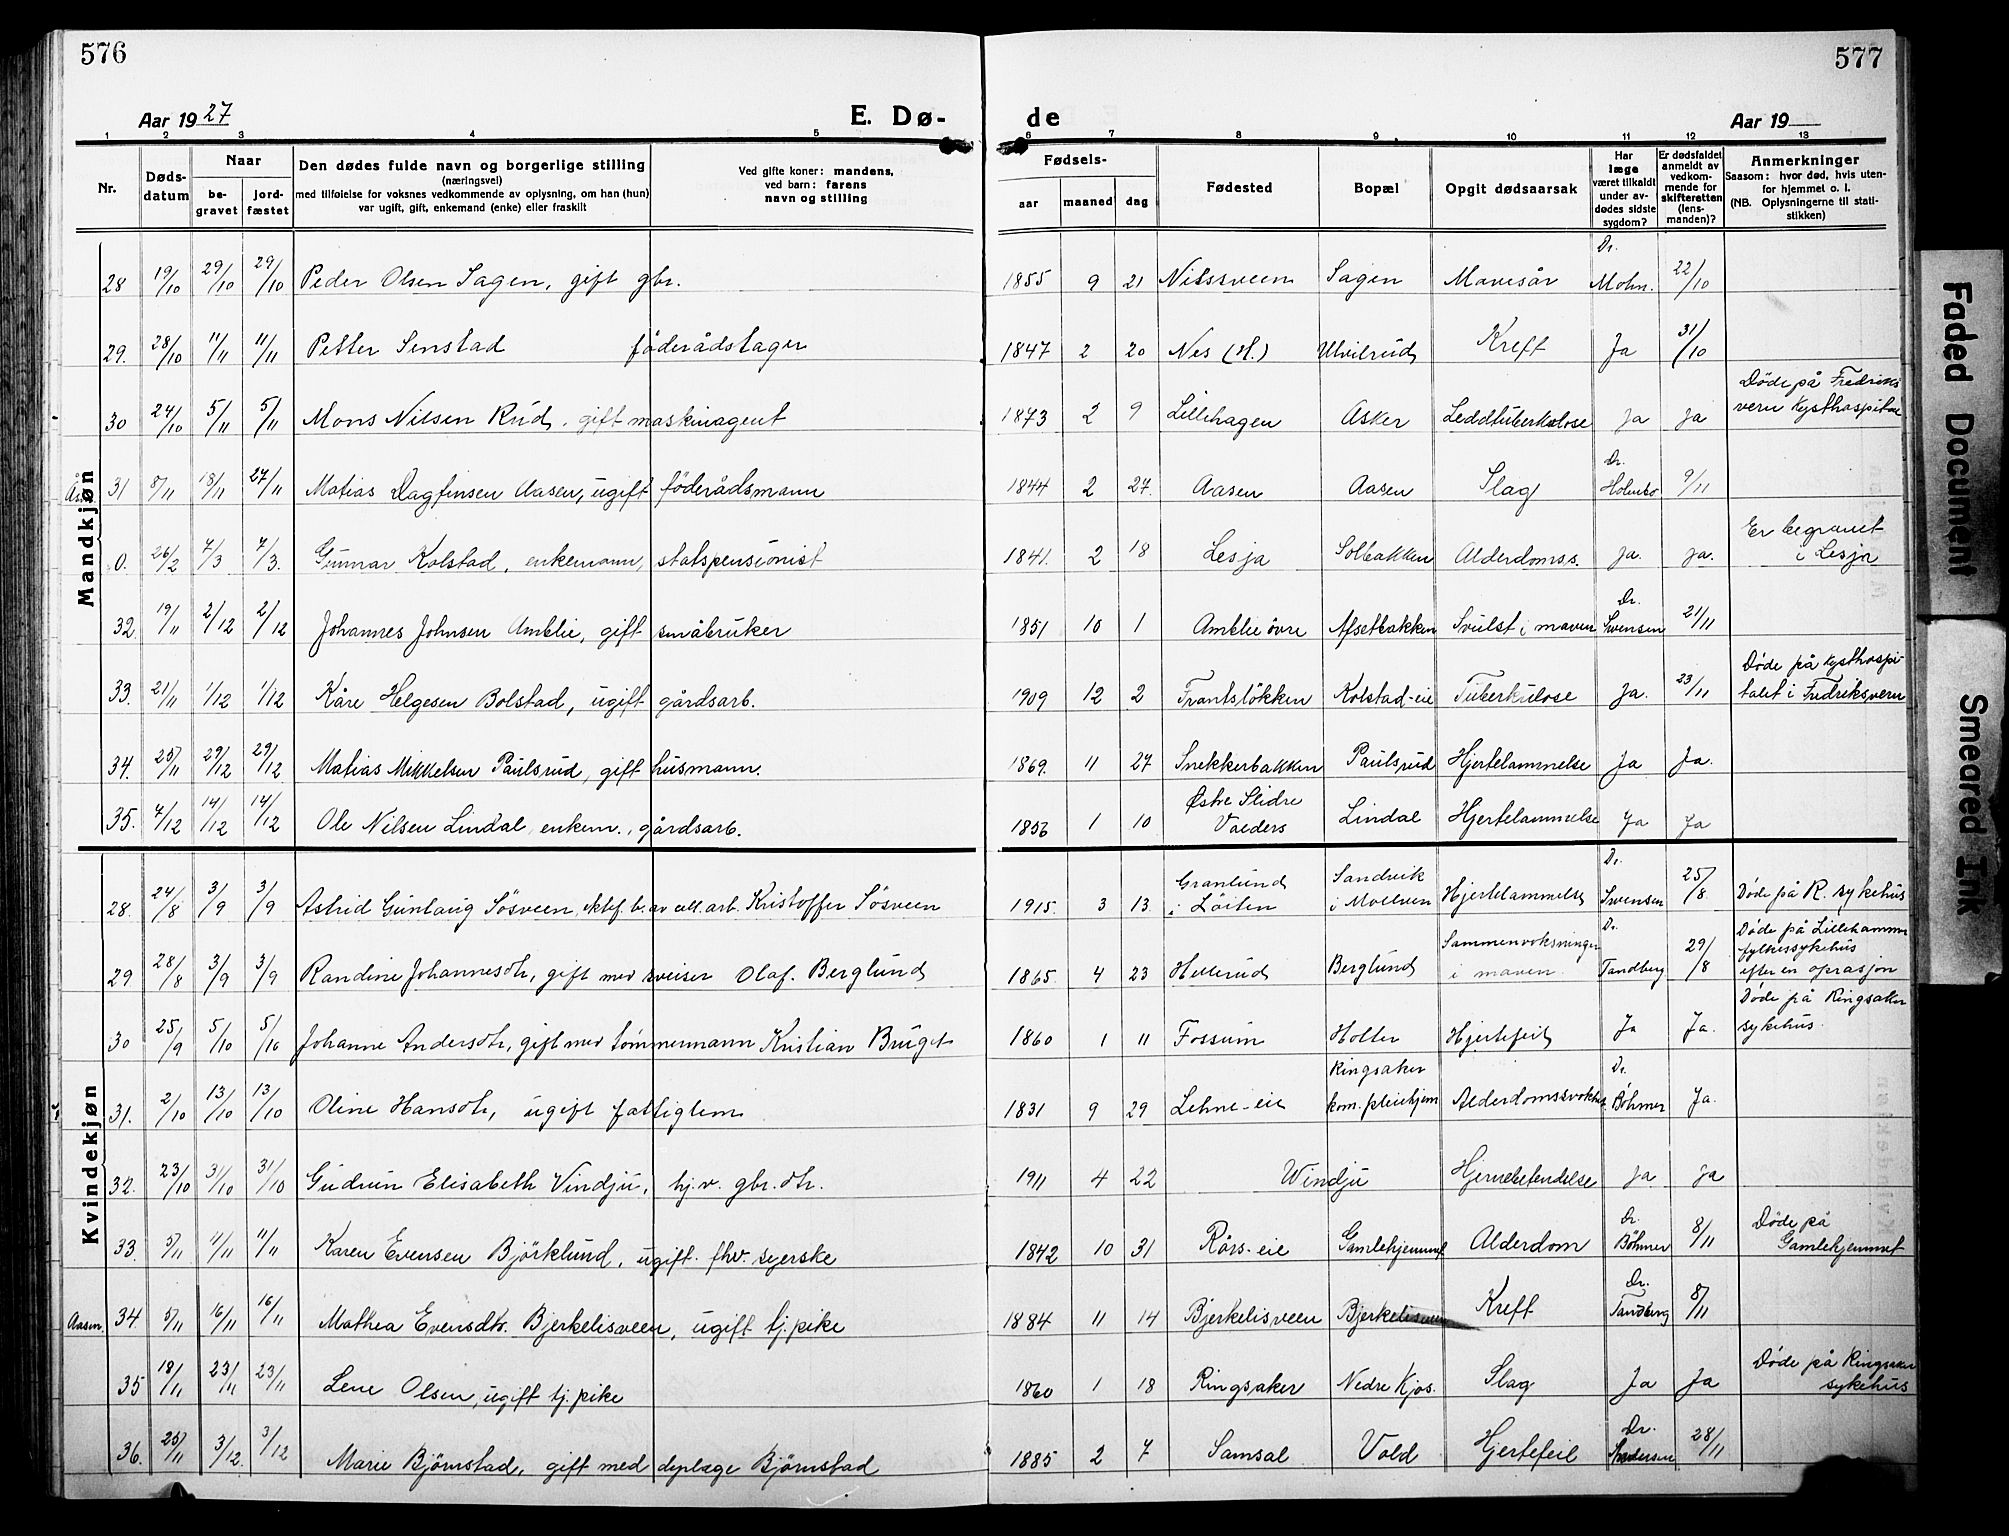 576
577
Aar 1927
E. Dø-
de
Aar 19
1 2 3 4 5 6 7 8 9 10 11 12 13
Nr.
Døds-
datum
Naar
be-
gravet
jord-
fæstet
Den dødes fulde navn og borgerlige stilling
(næringsvei)
med tilføielse for voksnes vedkommende av oplysning, om han (hun)
var ugift, gift, enkemand (enke) eller fraskilt
Ved gifte koner: mandens,
ved barn: farens
navn og stilling
Fødsels-
aar maaned dag
Fødested
Bopæl
Opgit dødsaarsak
Har
læge
været tilkaldt
under av-
dødes sidste
sygdom?
Er dødsfaldet
anmeldt av
vedkom-
mende for
skifteretten
(lens-
manden)?
Anmerkninger
Saasom: hvor død, hvis uten-
for hjemmet o. l.
(NB. Oplysningerne til stati-
stikken)
Mandkjøn
28 19/10 29/10 29/10 Peder Olsen Sagen, gift gbr. 1855 9 21 Nitssveen Sagen Mavesår Dr. Mohn. 22/10
29. 28/10 11/11 11/11 Petter Senstad föderådstager 1847 2 20 Nes (H.) Ulvilrud Kreft Ja 31/10
30 24/10 5/11 5/11 Mons Nilsen Rud, gift maskinagent 1873 2 9 Lillehagen Asker Leddtuberkulose Ja Ja Døde på Fredriks
vern Kysthospital
31 8/11 18/11 27/11 Matias Dagfinsen Aasen, ugift föderådsmann 1844 2 27. Aasen Aasen Slag Dr. Holmbo 9/11
0. 26/2 7/3 7/3. Gunnar Kolstad, enkemann, statspensionist 1841. 2 18 Lesja Solbakken Alderdomss. Ja. Ja. Er begravet
i Lesja
32. 19/11 2/12 2/12 Johannes Johnsen Amblie, gift småbruker 1851 10 1 Amblie övre Afsetbakken Svulst i maven Dr. Svensen 21/11
33. 21/11 1/12 1/12 Kåre Helgesen Bolstad, ugift gårdsarb. 1909 12 2 Frantsløkken Kolstad-eie Tuberkulose Ja. 23/11 Døde på Kysthospi-
talet i Fredriksvern
34. 25/11 29/12 29/12 Matias Mikkelsen Paulsrud, gift husmann. 1869. 11 27 Snekkerbakken Paulsrud Hjertelammelse Ja Ja.
35. 7/12 14/12 14/12 Ole Nilsen Lindal, enkem., gårdsarb. 1856 1 10 Østre Slidre
Valders Lindal Hjertelammelse Ja Ja
Kvindekjøn
28. 24/8 3/9 3/9 Astrid Gunlaug Søsveen, ektef. b. av cell. arb. Kristoffer Søsveen 1915. 3 13. Granlund
i Løiten Sandvik
i Moelven Hjertelammelse Dr. Svensen 25/8. Døde på R. sykehus
29 28/8 3/9 3/9 Randine Johannesdtr, gift med sveiser Olaf Berglund 1865. 4 23 Hellerud Berglund Sammenvoksninger
i maven Dr. Tandberg 29/8 Døde på Lillehammer
fylkessykehus
efter en oprasjon
30 25/9 5/10 5/10 Johanne Andersdtr, gift med tømmermann Kristian Bruget 1860 1 11 Fossum Holter Hjertefeil Ja Ja. Døde på Ringsaker
sykehus.
31. 2/10 13/10 13/10 Oline Hansdtr, ugift fattiglem 1831 9 29 Lehne-eie Ringsaker
kom. pleiehjem Alderdomssvakhet Dr. Böhmer Ja.
32. 23/10 31/10 31/10 Gudrun Elisabeth Vindju, hj.v. gbr. dtr. 1911 4 22 Windju Hjernebetendelse Ja Ja
33. 5/11 11/11 11/11 Karen Evensen Björklund, ugift. fhv. syerske 1842 10 31 Rørs-eie Gamlehjemmet Alderdom Dr. Böhmer 8/11 Døde på
Gamlehjemmet
Aasen. 34. 5/11 16/11 16/11 Mathea Evensdtr. Bjerkelisveen, ugift tj.pike 1884 11 14 Bjerkelisveen Bjerkelisveen Kreft Dr. Tandberg 8/11
35 18/11 23/11 23/11 Lene Olsen, ugift tj.pike 1860 1 18 Ringsaker Nedre Kjos. Slag Ja Ja Døde på Ringsaker
sykehus
36. 25/11 3/12. 3/12 Marie Bjørnstad, gift med dyrlæge Bjørnstad 1885 2 7 Samsal Vold Hjertefeil Dr. 28/11
Faded Document
Smeared Ink